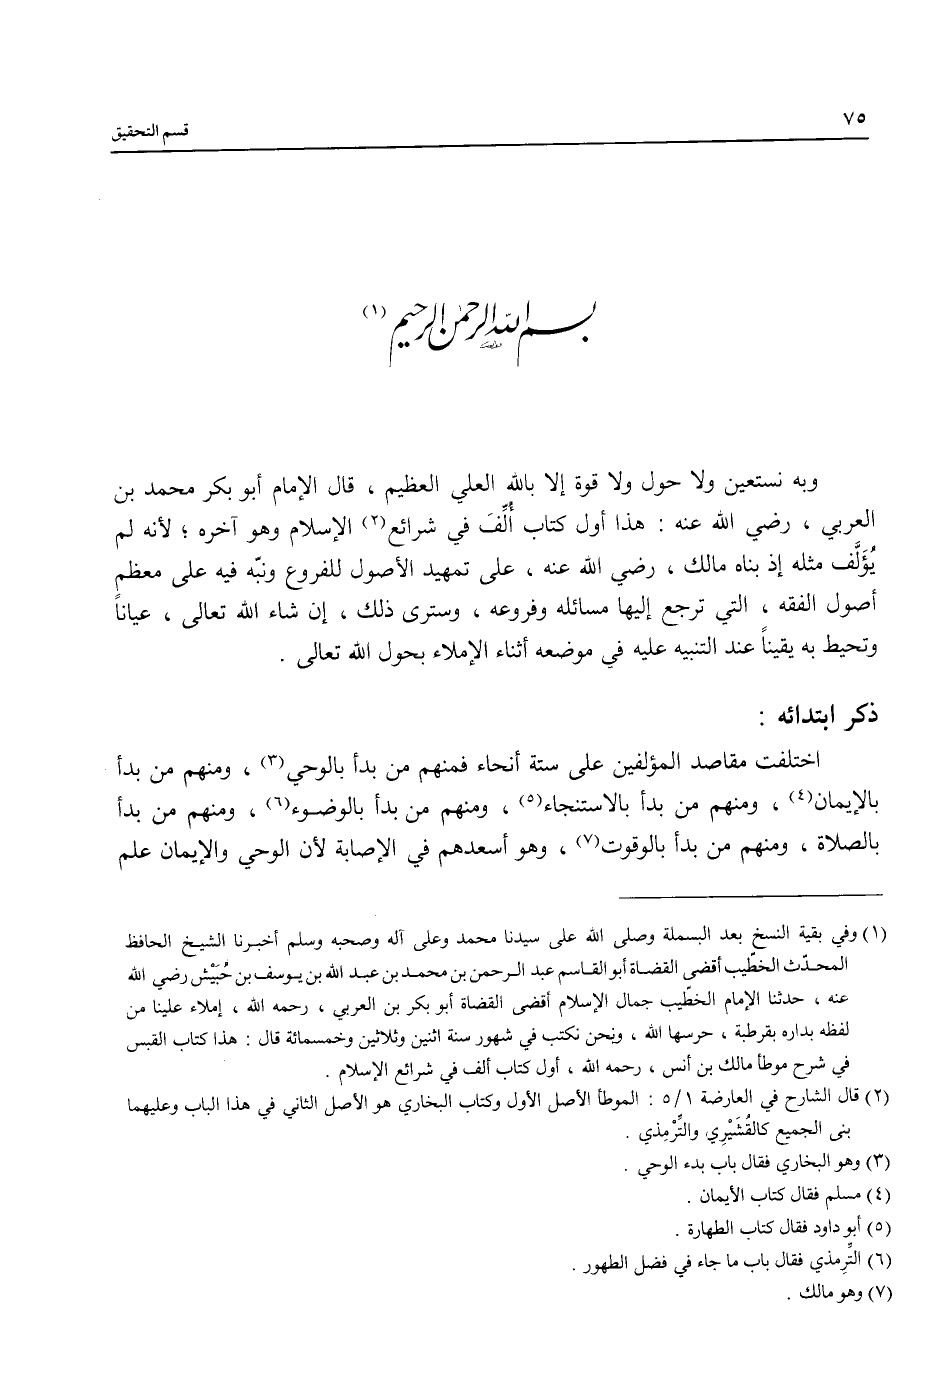 ٧٥
قسم التحقيق
بسم الله الرحمن الرحيم (١)
وبه نستعين ولا حول ولا قوة إلا بالله العلي العظيم ، قال الإمام أبو بكر محمد بن
العربي ، رضي الله عنه : هذا أول كتاب أُلِّفَ في شرائع(٢) الإسلام وهو آخره ؛ لأنه لم
يُؤَلَّف مثله إذ بناه مالك ، رضي الله عنه ، على تمهيد الأصول للفروع ونبّه فيه على معظم
أصول الفقه ، التي ترجع إليها مسائله وفروعه ، وسترى ذلك ، إن شاء الله تعالى ، عياناً
وتحيط به يقيناً عند التنبيه عليه في موضعه أثناء الإملاء بحول الله تعالى .
ذكر ابتدائه :
اختلفت مقاصد المؤلفين على ستة أنحاء فمنهم من بدأ بالوحي(٣) ، ومنهم من بدأ
بالإيمان(٤) ، ومنهم من بدأ بالاستنجاء(٥) ، ومنهم من بدأ بالوضوء(٦) ، ومنهم من بدأ
بالصلاة ، ومنهم من بدأ بالوقوت(٧) ، وهو أسعدهم في الإصابة لأن الوحي والإيمان علم
(١) وفي بقية النسخ بعد البسملة وصلى الله على سيدنا محمد وعلى آله وصحبه وسلم أخبرنا الشيخ الحافظ
المحدّث الخطّيب أقضى القضاة أبو القاسم عبد الرحمن بن محمد بن عبد الله بن يوسف بن حُبَيْش رضي الله
عنه ، حدثنا الإمام الخطّيب جمال الإسلام أقضى القضاة أبو بكر بن العربي ، رحمه الله ، إملاء علينا من
لفظه بداره بقرطبة ، حرسها الله ، ونحن نكتب في شهور سنة اثنين وثلاثين وخمسمائة قال : هذا كتاب القبس
في شرح موطأ مالك بن أنس ، رحمه الله ، أول كتاب ألف في شرائع الإسلام .
(٢) قال الشارح في العارضة ١/ ٥ : الموطأ الأصل الأول وكتاب البخاري هو الأصل الثاني في هذا الباب وعليهما
بنى الجميع كالقُشَيْرِي والتِّرْمِذي .
(٣) وهو البخاري فقال باب بدء الوحي .
(٤) مسلم فقال كتاب الأيمان .
(٥) أبو داود فقال كتاب الطهارة .
(٦) التِّرمِذي فقال باب ما جاء في فضل الطهور .
(٧) وهو مالك .